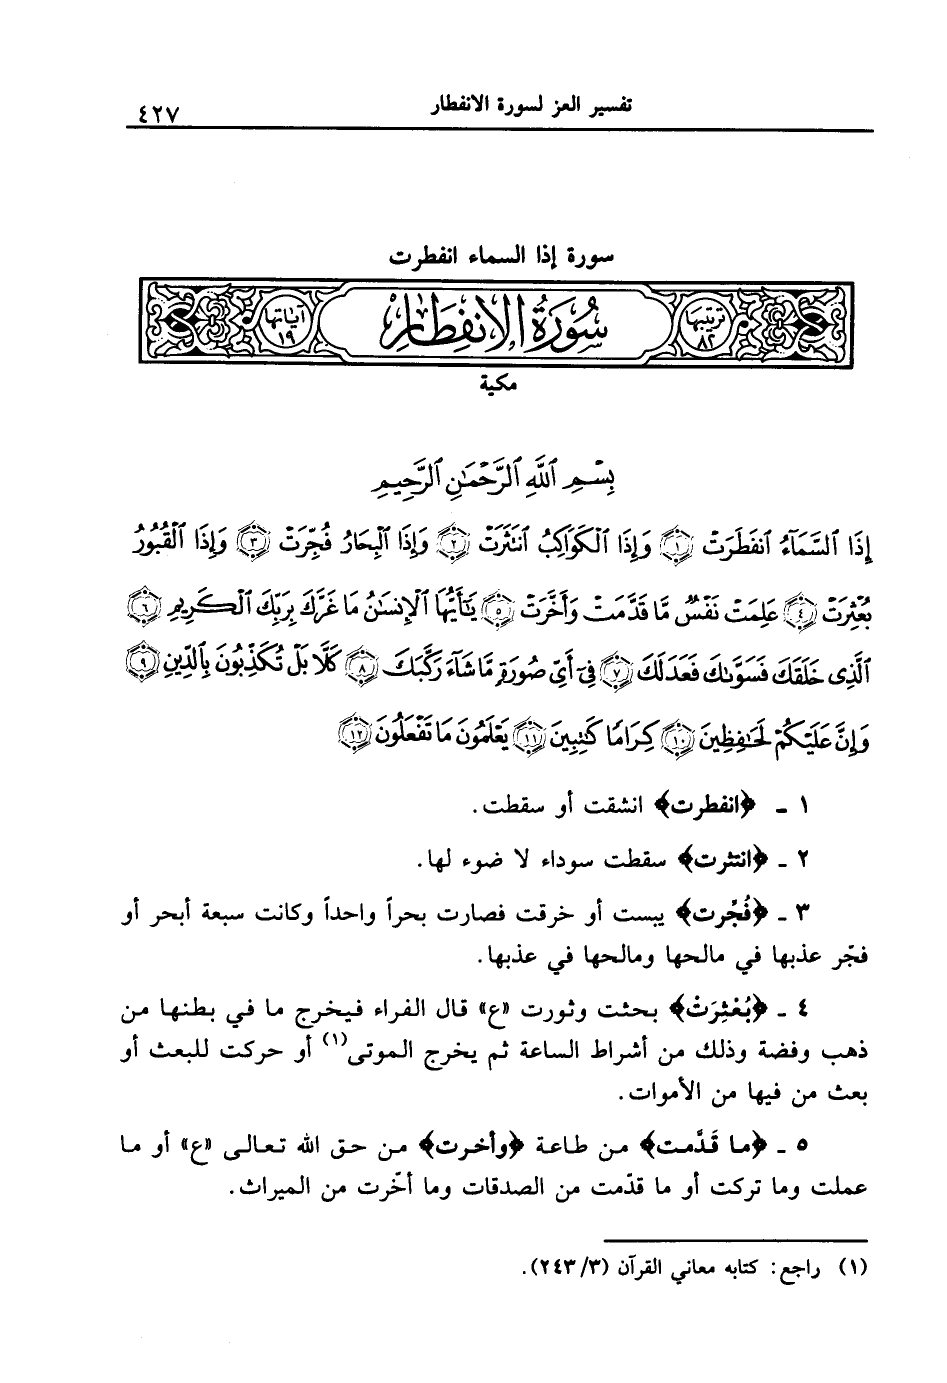 تفسير العز لسورة الانفطار
٤٢٧
سورة إذا السماء انفطرت
ترتيبها ٨٢ سُورَةُ الانفِطَار آياتها ١٩
مكية
بِسْمِ ٱللَّهِ ٱلرَّحْمَٰنِ ٱلرَّحِيمِ
إِذَا ٱلسَّمَآءُ ٱنفَطَرَتْ ﴿١﴾ وَإِذَا ٱلْكَوَاكِبُ ٱنتَثَرَتْ ﴿٢﴾ وَإِذَا ٱلْبِحَارُ فُجِّرَتْ ﴿٣﴾ وَإِذَا ٱلْقُبُورُ
بُعْثِرَتْ ﴿٤﴾ عَلِمَتْ نَفْسٌ مَّا قَدَّمَتْ وَأَخَّرَتْ ﴿٥﴾ يَٰٓأَيُّهَا ٱلْإِنسَٰنُ مَا غَرَّكَ بِرَبِّكَ ٱلْكَرِيمِ ﴿٦﴾
ٱلَّذِى خَلَقَكَ فَسَوَّىٰكَ فَعَدَلَكَ ﴿٧﴾ فِىٓ أَىِّ صُورَةٍ مَّا شَآءَ رَكَّبَكَ ﴿٨﴾ كَلَّا بَلْ تُكَذِّبُونَ بِٱلدِّينِ ﴿٩﴾
وَإِنَّ عَلَيْكُمْ لَحَٰفِظِينَ ﴿١٠﴾ كِرَامًا كَٰتِبِينَ ﴿١١﴾ يَعْلَمُونَ مَا تَفْعَلُونَ ﴿١٢﴾
١ ـ ﴿انفطرت﴾ انشقت أو سقطت.
٢ ـ ﴿انتثرت﴾ سقطت سوداء لا ضوء لها.
٣ ـ ﴿فُجِّرت﴾ يبست أو خرقت فصارت بحراً واحداً وكانت سبعة أبحر أو
فجّر عذبها في مالحها ومالحها في عذبها.
٤ ـ ﴿بُعْثِرَتْ﴾ بحثت وثورت «ع» قال الفراء فيخرج ما في بطنها من
ذهب وفضة وذلك من أشراط الساعة ثم يخرج الموتى(١) أو حركت للبعث أو
بعث من فيها من الأموات.
٥ ـ ﴿ما قَدَّمت﴾ من طاعة ﴿وأخرت﴾ من حق الله تعالى «ع» أو ما
عملت وما تركت أو ما قدّمت من الصدقات وما أخّرت من الميراث.
(١) راجع: كتابه معاني القرآن (٢٤٣/٣).